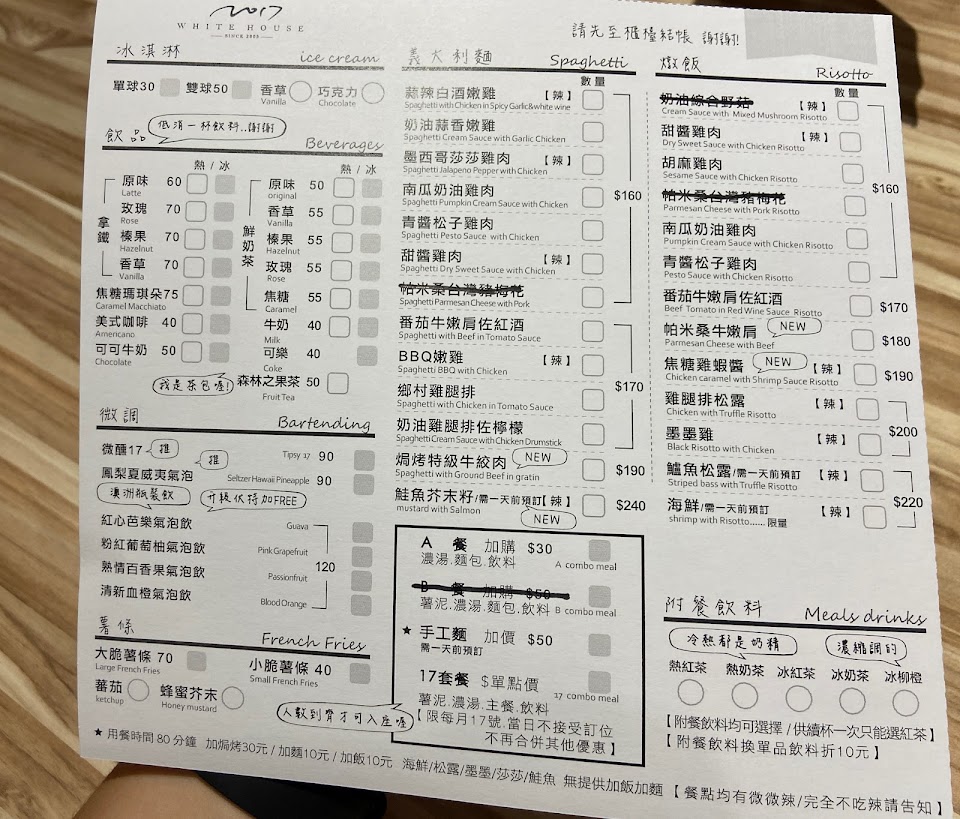 2017
WHITE HOUSE
SINCE 2003
請先至櫃檯結帳 謝謝!
冰淇淋 ice cream
單球30 雙球50 香草 Vanilla 巧克力 Chocolate
飲品 低消一杯飲料..謝謝 Beverages
熱 / 冰 熱 / 冰
拿鐵
原味 60
Latte
玫瑰 70
Rose
榛果 70
Hazelnut
香草 70
Vanilla
焦糖瑪琪朵75
Caramel Macchiato
美式咖啡 40
Americano
可可牛奶 50
Chocolate
鮮奶茶
原味 50
original
香草 55
Vanilla
榛果 55
Hazelnut
玫瑰 55
Rose
焦糖 55
Caramel
牛奶 40
Milk
可樂 40
Coke
我是茶包喔! 森林之果茶 50
Fruit Tea
微調 Bartending
微醺17 推 Tipsy 17 90
鳳梨夏威夷氣泡 推 Seltzer Hawaii Pineapple 90
澳洲瓶裝飲 升級依特加FREE
紅心芭樂氣泡飲 Guava
粉紅葡萄柚氣泡飲 Pink Grapefruit
熱情百香果氣泡飲 Passionfruit
清新血橙氣泡飲 Blood Orange
120
薯條 French Fries
大脆薯條 70 小脆薯條 40
Large French Fries Small French Fries
蕃茄 ketchup 蜂蜜芥末 Honey mustard
義大利麵 Spaghetti
數量
蒜辣白酒嫩雞 【辣】
Spaghetti with Chicken in Spicy Garlic&white wine
奶油蒜香嫩雞
Spaghetti Cream Sauce with Garlic Chicken
墨西哥莎莎雞肉 【辣】
Spaghetti Jalapeno Pepper with Chicken
南瓜奶油雞肉 $160
Spaghetti Pumpkin Cream Sauce with Chicken
青醬松子雞肉
Spaghetti Pesto Sauce with Chicken
甜醬雞肉 【辣】
Spaghetti Dry Sweet Sauce with Chicken
帕米桑台灣豬梅花
Spaghetti Parmesan Cheese with Pork
番茄牛嫩肩佐紅酒
Spaghetti with Beef in Tomato Sauce
BBQ嫩雞 【辣】
Spaghetti BBQ with Chicken
$170
鄉村雞腿排
Spaghetti with Chicken in Tomato Sauce
奶油雞腿排佐檸檬
Spaghetti Cream Sauce with Chicken Drumstick
焗烤特級牛絞肉 NEW $190
Spaghetti with Ground Beef in gratin
鮭魚芥末籽/需一天前預訂【辣】 $240
mustard with Salmon NEW
A 餐 加購 $30
濃湯.麵包.飲料 A combo meal
B 餐 加購 $50
薯泥.濃湯.麵包.飲料 B combo meal
★ 手工麵 加價 $50
需一天前預訂
17套餐 $單點價
薯泥.濃湯.主餐.飲料 17 combo meal
【限每月17號.當日不接受訂位
不再合併其他優惠】
人數到齊才可入座喔
燉飯 Risotto
數量
奶油綜合野菇 【辣】
Cream Sauce with Mixed Mushroom Risotto
甜醬雞肉 【辣】
Dry Sweet Sauce with Chicken Risotto
胡麻雞肉
Sesame Sauce with Chicken Risotto
$160
帕米桑台灣豬梅花
Parmesan Cheese with Pork Risotto
南瓜奶油雞肉
Pumpkin Cream Sauce with Chicken Risotto
青醬松子雞肉
Pesto Sauce with Chicken Risotto
番茄牛嫩肩佐紅酒 $170
Beef Tomato in Red Wine Sauce Risotto
帕米桑牛嫩肩 NEW $180
Parmesan Cheese with Beef
焦糖雞蝦醬 NEW 【辣】 $190
Chicken caramel with Shrimp Sauce Risotto
雞腿排松露 【辣】
Chicken with Truffle Risotto
$200
墨墨雞 【辣】
Black Risotto with Chicken
鱸魚松露/需一天前預訂 【辣】
Striped bass with Truffle Risotto
$220
海鮮/需一天前預訂 【辣】
shrimp with Risotto...... 限量
附餐飲料 Meals drinks
冷熱都是奶精 濃縮調的
熱紅茶 熱奶茶 冰紅茶 冰奶茶 冰柳橙
【附餐飲料均可選擇 / 供續杯一次只能選紅茶】
【附餐飲料換單品飲料折10元】
★ 用餐時間 80 分鐘 加焗烤30元 / 加麵10元 / 加飯10元 海鮮/松露/墨墨/莎莎/鮭魚 無提供加飯加麵 【餐點均有微微辣/完全不吃辣請告知】